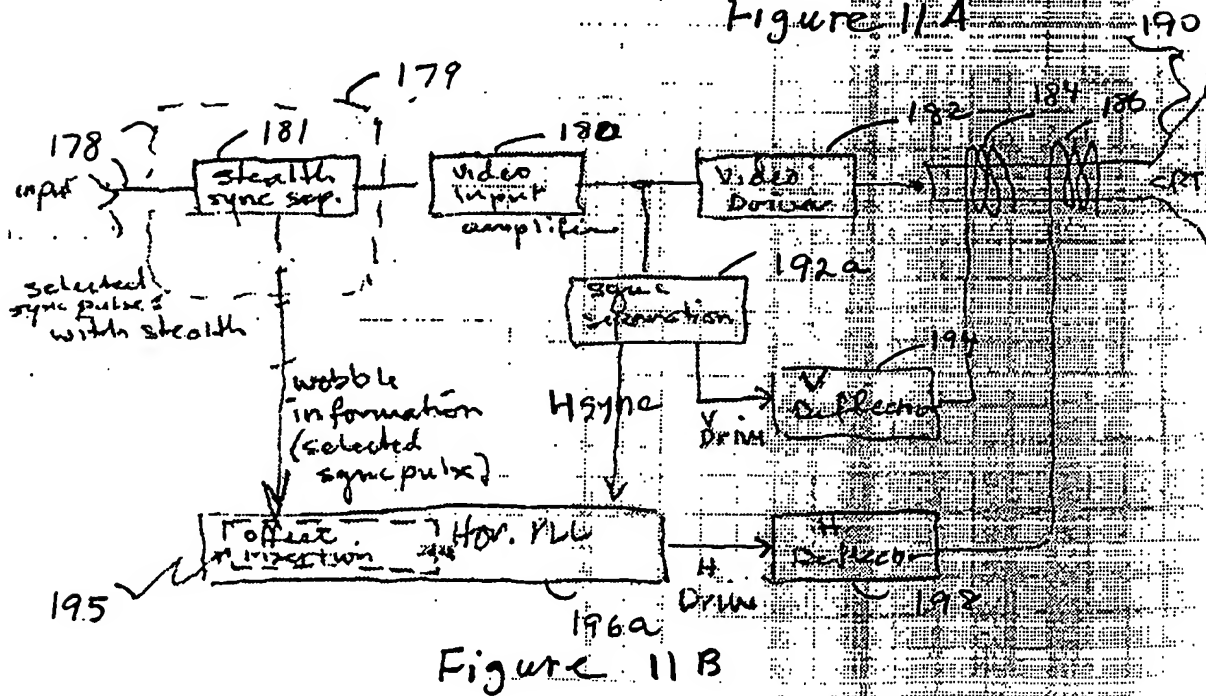 Figure 11A
190
179
178
181
180
182
184
186
input
stealth
sync sep.
video
input
amplifier
Video
Driver
CRT
selected
sync pulses
with stealth
192a
sync
separation
194
wobble
information
(selected
sync pulse)
Hsync
V
Drive
V
Deflection
offset
insertion
Hor. PLL
H
Drive
H
Deflection
195
196a
198
Figure 11B